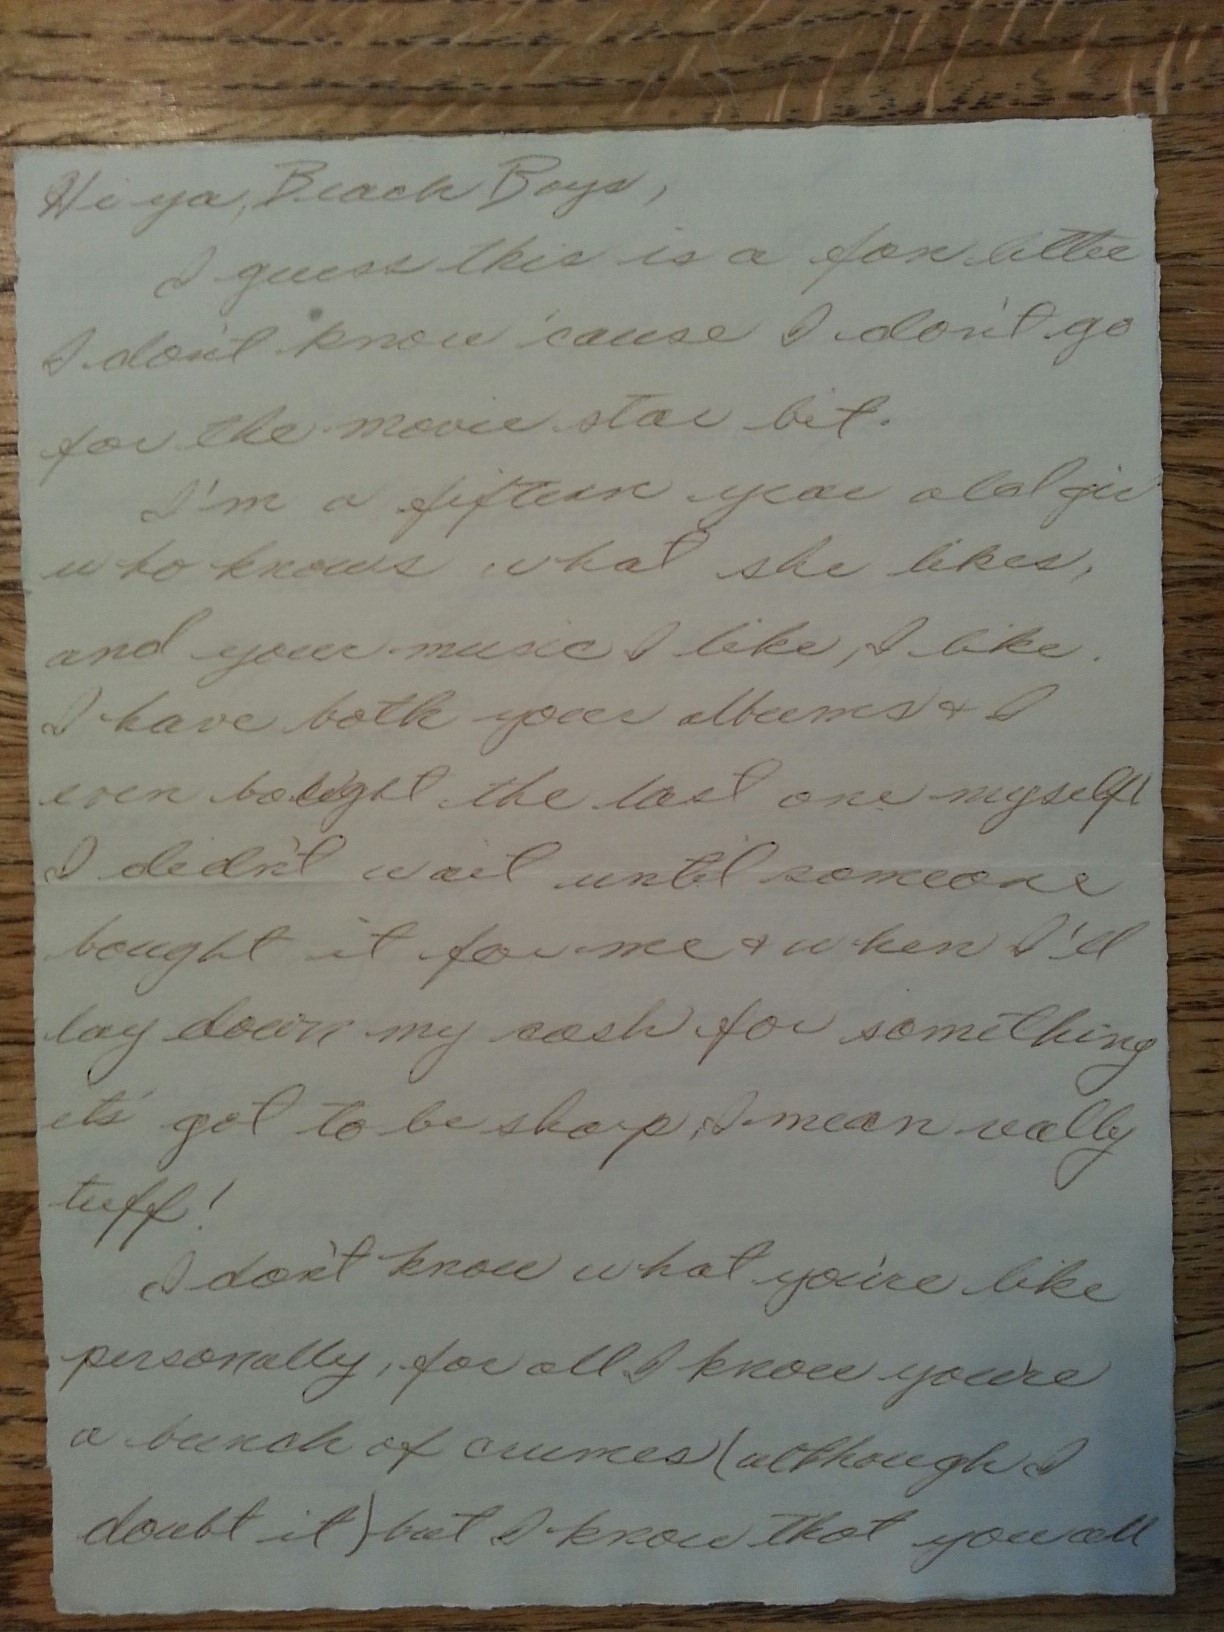 Hi ya, Beach Boys,
I guess this is a fan letter
I don't know 'cause I don't go
for the movie star bit.
I'm a fifteen year old gir
who knows what she likes,
and your music I like, I like.
I have both your albums & I
even bought the last one myself!
I didn't wait until someone
bought it for me & when I'll
lay down my cash for something
its' got to be sharp, I mean really
tuff!
I don't know what you're like
personally, for all I know you're
a bunch of crumes (although I
doubt it) but I know that you all